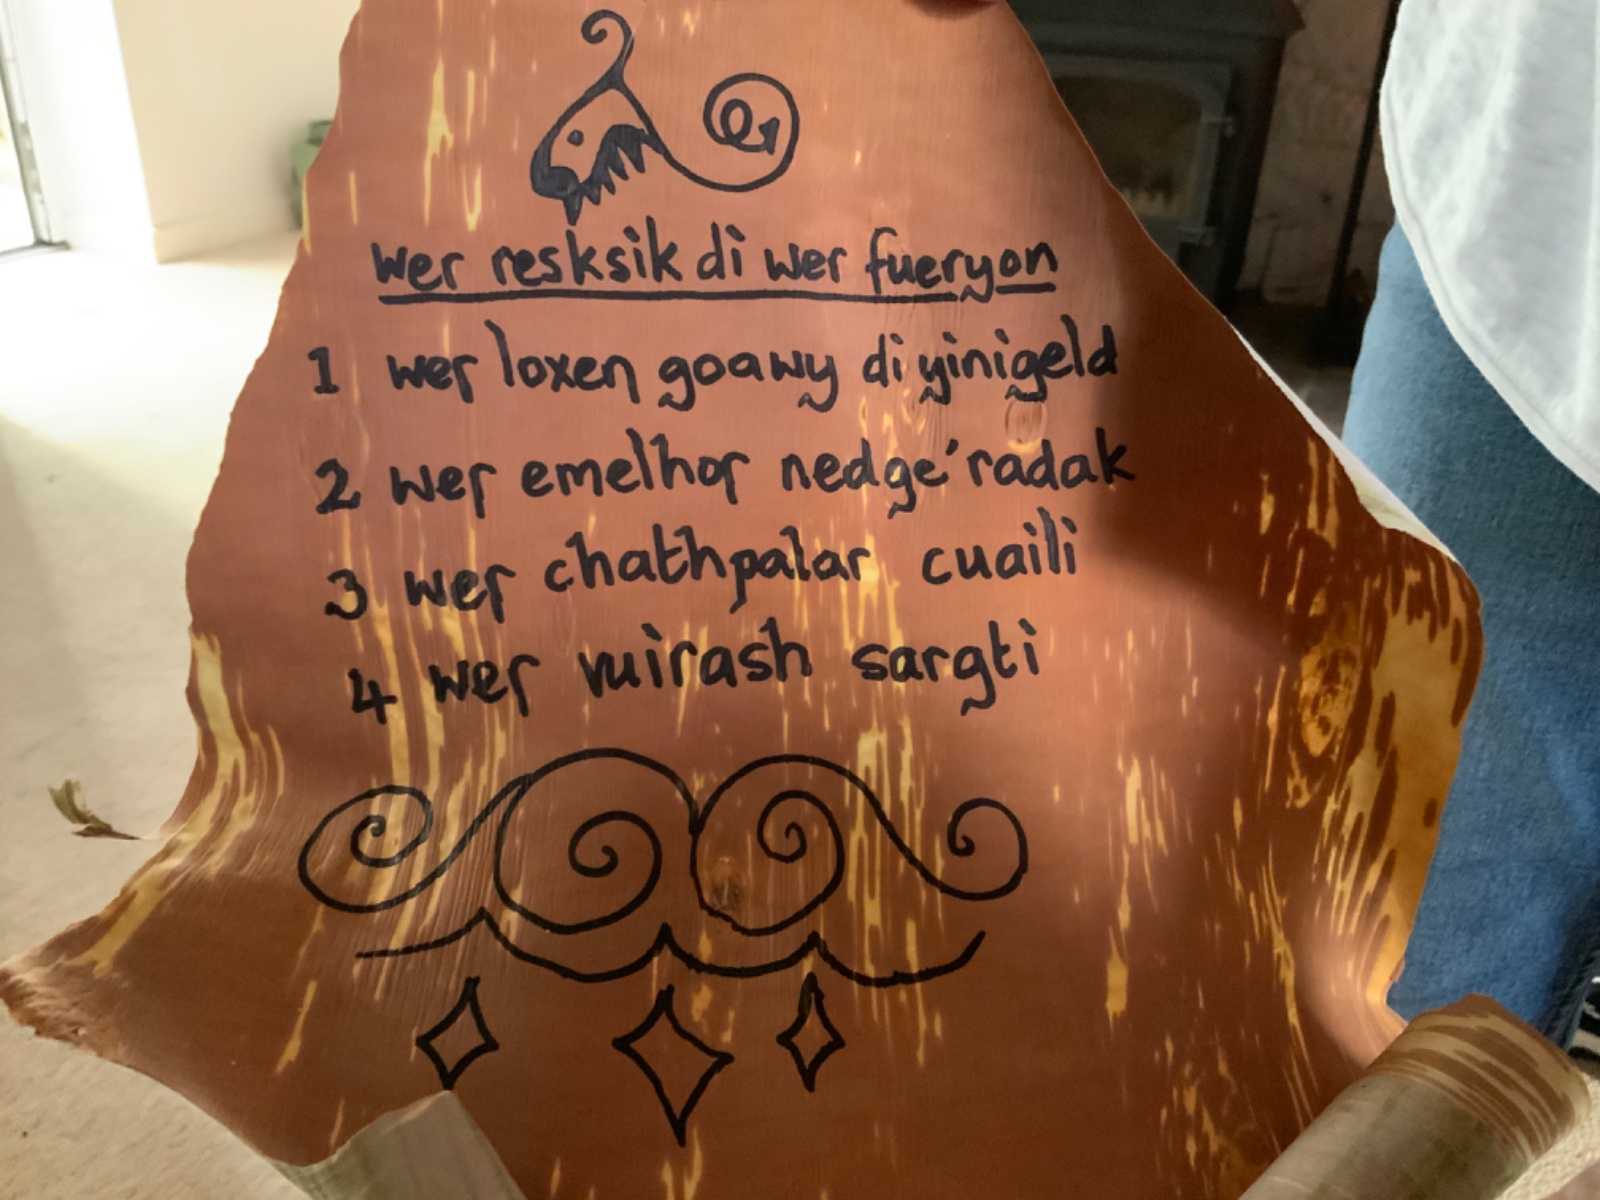 wer resksik di wer fueryon
1 wer loxen goawy di yinigeld
2 wer emelhor nedge'radak
3 wer chathpalar cuaili
4 wer vuirash sargti